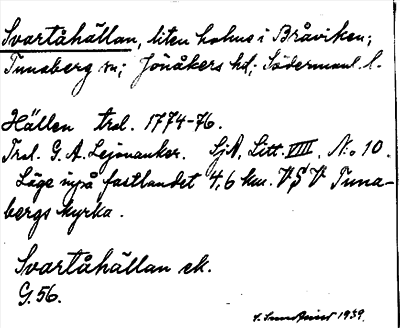 Svartåhällan, liten holme i Bråviken;
Tunaberg sn; Jönåkers hd; Södermanl. l.
Hällen trol. 1774-76.
Trol. G. A. Lejonanker. SjA, Litt. VIII, No 10.
Läge uppå fastlandet 4,6 km. VSV Tuna-
bergs kyrka.
Svartåhällan ek.
G. 56.
1939.